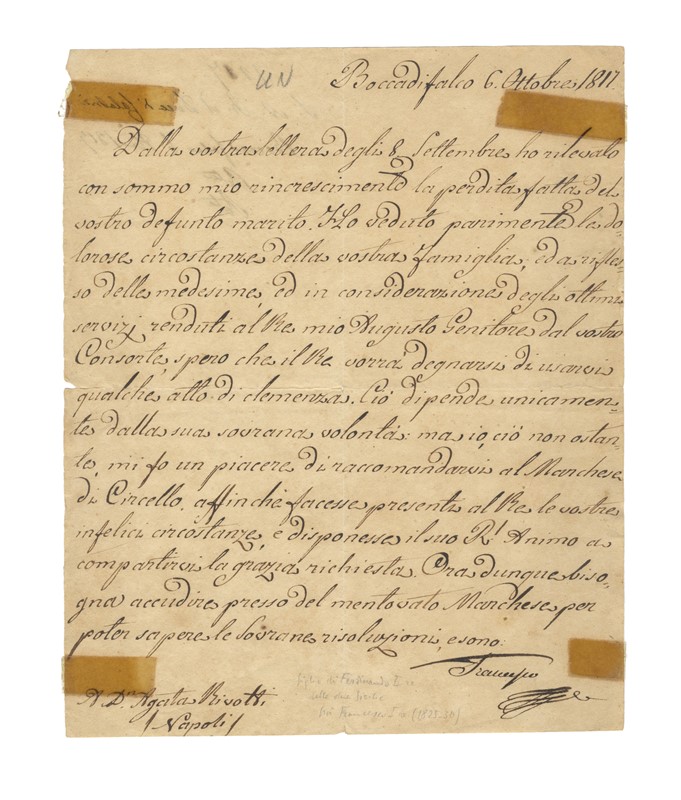 UN
Boccadifalco 6. Ottobre 1817.
Dalla vostra lettera degli 8. Settembre ho rilevato
con sommo mio rincrescimento la perdita fatta del
vostro defunto marito. Ho veduto parimente le do-
lorose circostanze della vostra famiglia; ed a rifles-
so delle medesime, ed in considerazione degli ottimi
servizj renduti al Re mio Augusto Genitore dal vostro
Consorte, spero che il Re vorrà degnarsi di usarvi
qualche atto di clemenza. Ciò dipende unicamen-
te dalla sua sovrana volontà: ma io, ciò non ostan-
te, mi fo un piacere di raccomandarvi al Marchese
di Circello, affinchè facesse presenti al Re le vostre
infelici circostanze, e disponesse il suo Rl. Animo a
compartirvi la grazia richiesta. Ora dunque biso-
gna accudire presso del mentovato Marchese per
poter sapere le Sovrane risoluzioni, e sono.
Francesco
A Da. Agata Rivotti
(Napoli)
figlio di Ferdinando I re
delle due Sicilie
poi Francesco I re (1825-30)